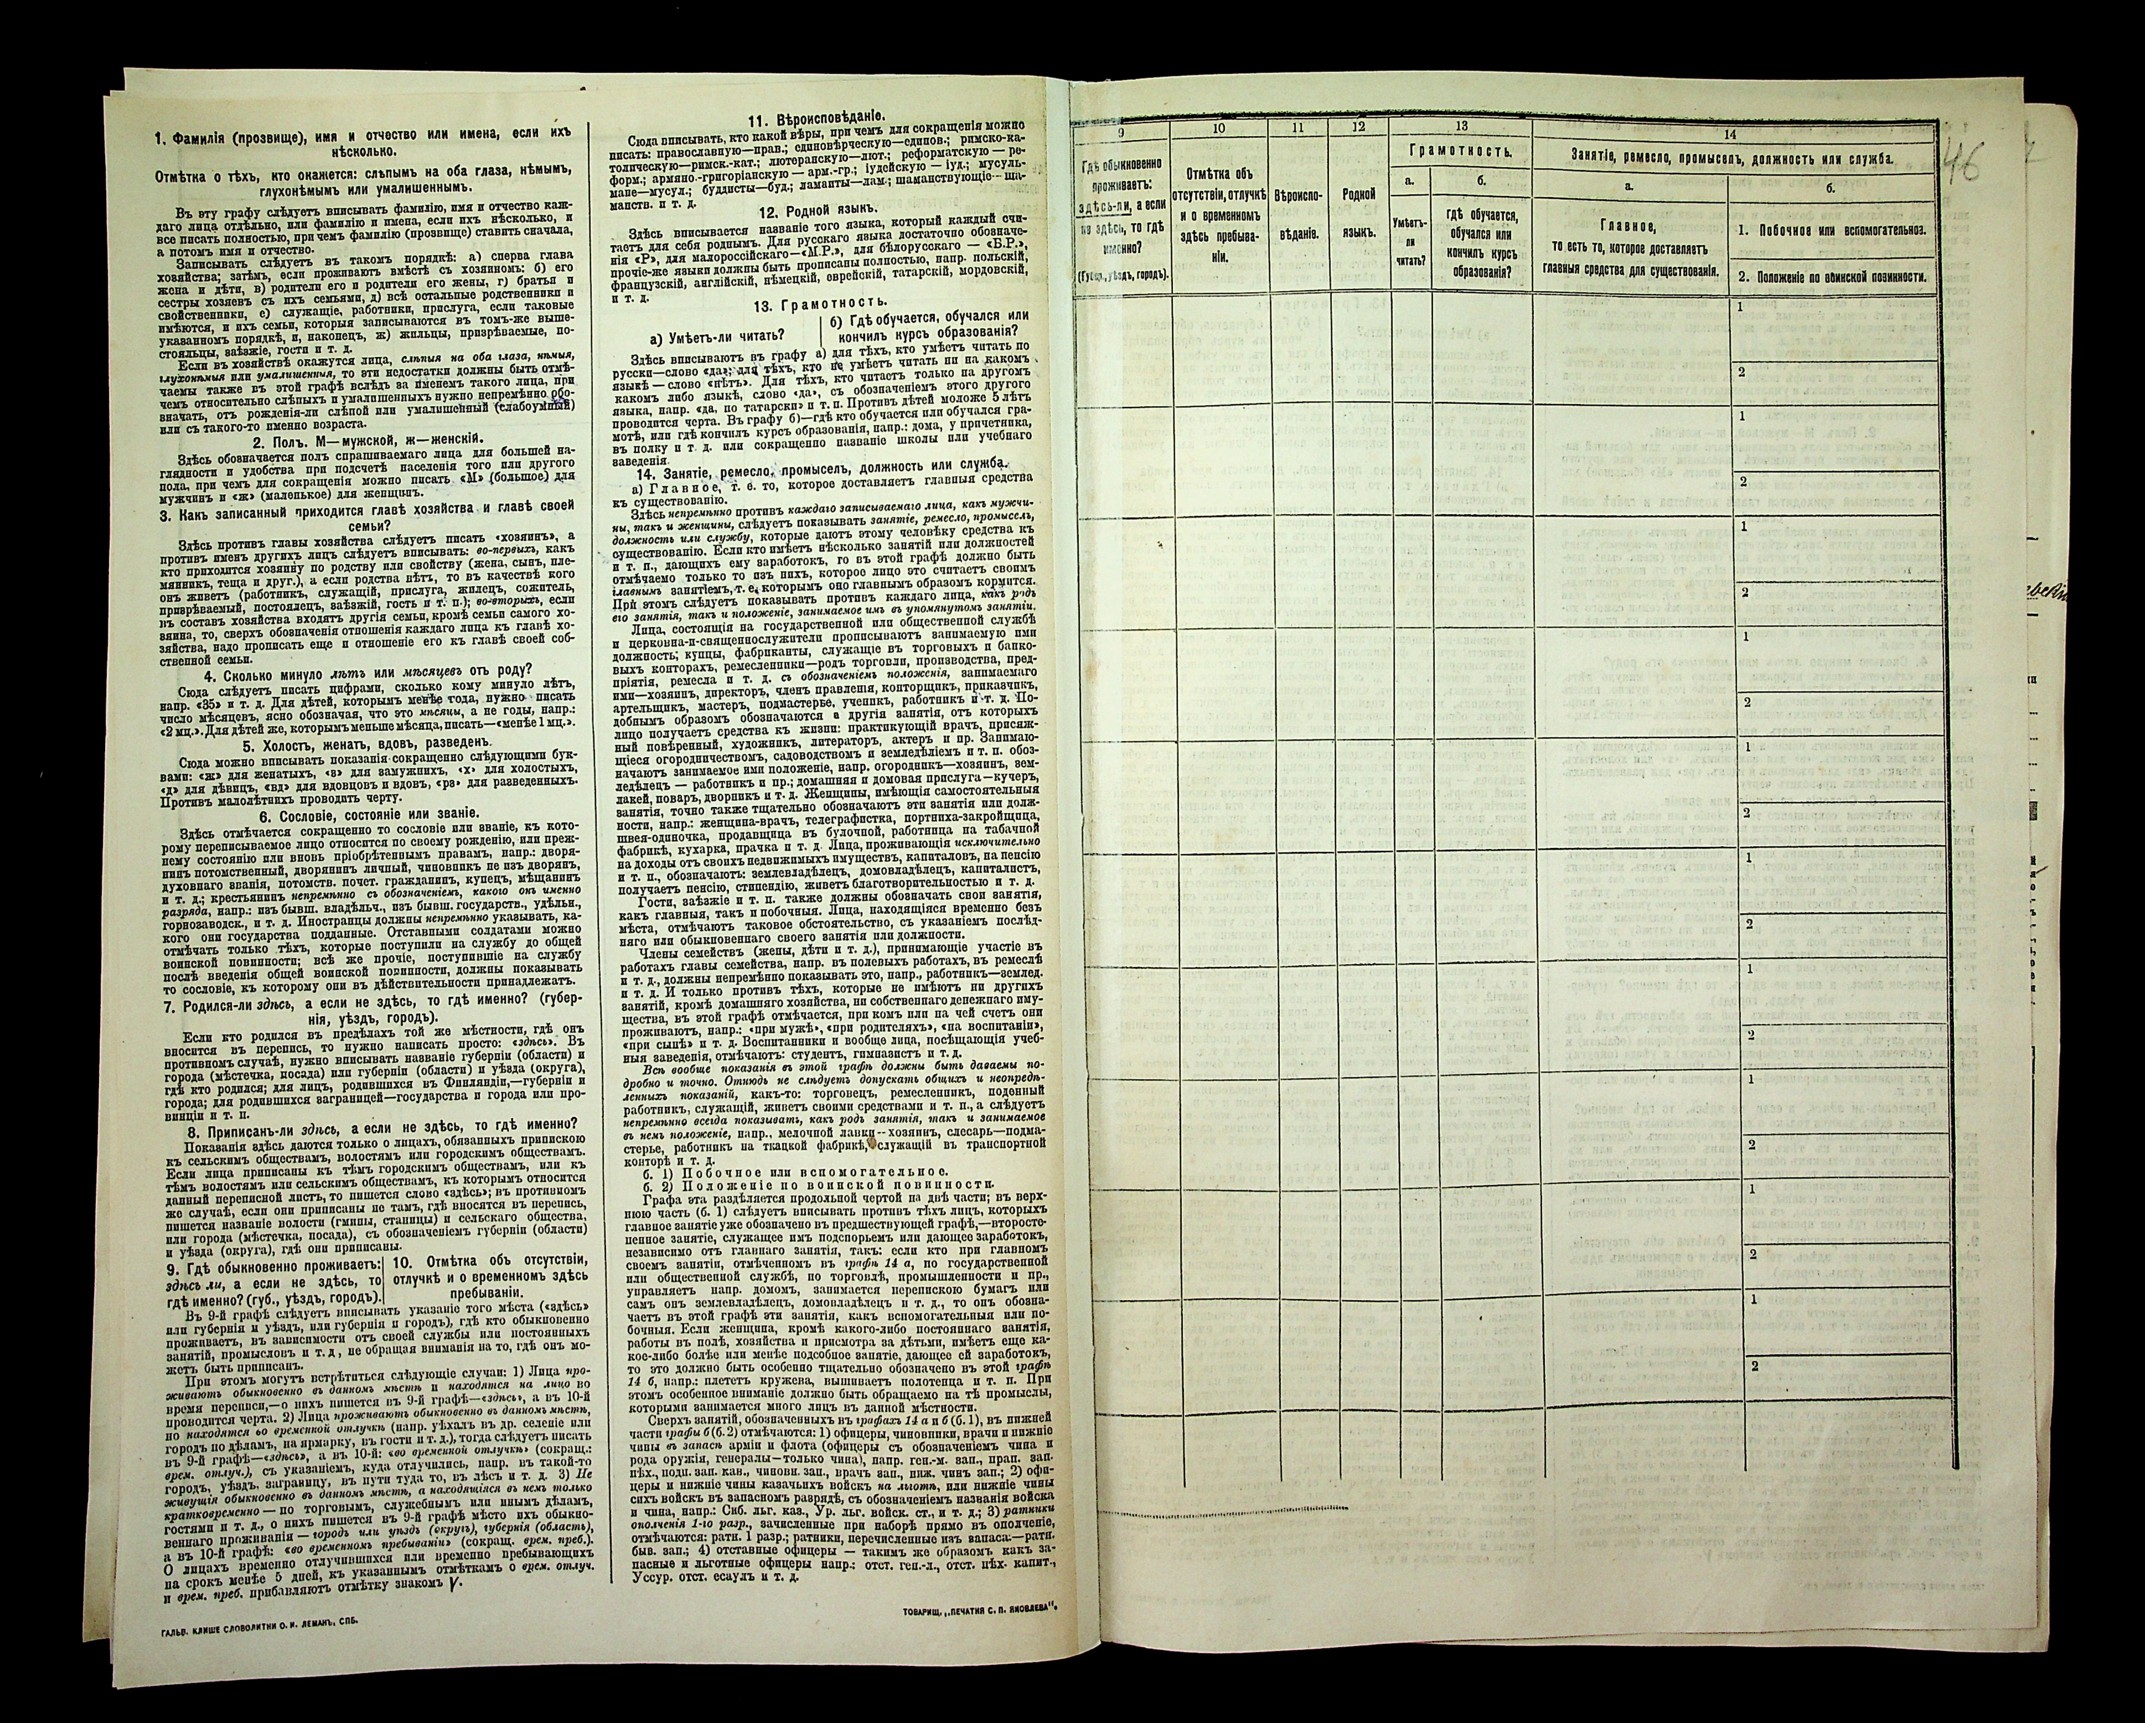 1. Фамилія (прозвище), имя и отчество или имена, если ихъ
нѣсколько.
Отмѣтка о тѣхъ, кто окажется: слѣпымъ на оба глаза, нѣмымъ,
глухонѣмымъ или умалишеннымъ.
Въ эту графу слѣдуетъ вписывать фамилію, имя и отчество каж-
даго лица отдѣльно, или фамилію и имена, если ихъ нѣсколько, и
все писать полностью, при чемъ фамилію (прозвище) ставить сначала,
а потомъ имя и отчество.
Записывать слѣдуетъ въ такомъ порядкѣ: а) сперва глава
хозяйства; затѣмъ, если проживаютъ вмѣстѣ съ хозяиномъ: б) его
жена и дѣти, в) родители его и родители его жены, г) братья и
сестры хозяевъ съ ихъ семьями, д) всѣ остальные родственники и
свойственники, е) служащіе, работники, прислуга, если таковые
имѣются, и ихъ семьи, которыя записываются въ томъ-же выше-
указанномъ порядкѣ, и, наконецъ, ж) жильцы, призрѣваемые, по-
стояльцы, заѣзжіе, гости и т. д.
Если въ хозяйствѣ окажутся лица, слѣпыя на оба глаза, нѣмыя,
глухонѣмыя или умалишенныя, то эти недостатки должны быть отмѣ-
чаемы также въ этой графѣ вслѣдъ за именемъ такого лица, при
чемъ относительно слѣпыхъ и умалишенныхъ нужно непремѣнно обо-
значать, отъ рожденія-ли слѣпой или умалишенный (слабоумный)
или съ такого-то именно возраста.
2. Полъ. М—мужской, ж—женскій.
Здѣсь обозначается полъ спрашиваемаго лица для большей на-
глядности и удобства при подсчетѣ населенія того или другого
пола, при чемъ для сокращенія можно писать «М» (большое) для
мужчинъ и «ж» (маленькое) для женщинъ.
3. Какъ записанный приходится главѣ хозяйства и главѣ своей
семьи?
Здѣсь противъ главы хозяйства слѣдуетъ писать «хозяинъ», а
противъ именъ другихъ лицъ слѣдуетъ вписывать: во-первыхъ, какъ
кто приходится хозяину по родству или свойству (жена, сынъ, пле-
мянникъ, теща и друг.), а если родства нѣтъ, то въ качествѣ кого
онъ живетъ (работникъ, служащій, прислуга, жилецъ, сожитель,
призрѣваемый, постоялецъ, заѣзжій, гость и т. п.); во-вторыхъ, если
въ составъ хозяйства входятъ другія семьи, кромѣ семьи самого хо-
зяина, то, сверхъ обозначенія отношенія каждаго лица къ главѣ хо-
зяйства, надо прописать еще и отношеніе его къ главѣ своей соб-
ственной семьи.
4. Сколько минуло лѣтъ или мѣсяцевъ отъ роду?
Сюда слѣдуетъ писать цифрами, сколько кому минуло лѣтъ,
напр. «35» и т. д. Для дѣтей, которымъ менѣе года, нужно писать
число мѣсяцевъ, ясно обозначая, что это мѣсяцы, а не годы, напр.:
«2 мц.». Для дѣтей же, которымъ меньше мѣсяца, писать—«менѣе 1 мц.».
5. Холостъ, женатъ, вдовъ, разведенъ.
Сюда можно вписывать показанія сокращенно слѣдующими бук-
вами: «ж» для женатыхъ, «з» для замужнихъ, «х» для холостыхъ,
«д» для дѣвицъ, «вд» для вдовцовъ и вдовъ, «рз» для разведенныхъ.
Противъ малолѣтнихъ проводить черту.
6. Сословіе, состояніе или званіе.
Здѣсь отмѣчается сокращенно то сословіе или званіе, къ кото-
рому переписываемое лицо относится по своему рожденію, или преж-
нему состоянію или вновь пріобрѣтеннымъ правамъ, напр.: дворя-
нинъ потомственный, дворянинъ личный, чиновникъ не изъ дворянъ,
духовнаго званія, потомств. почет. гражданинъ, купецъ, мѣщанинъ
и т. д.; крестьянинъ непремѣнно съ обозначеніемъ, какого онъ именно
разряда, напр.: изъ бывш. владѣльч., изъ бывш. государств., удѣльн.,
горнозаводск., и т. д. Иностранцы должны непремѣнно указывать, ка-
кого они государства подданные. Отставными солдатами можно
отмѣчать только тѣхъ, которые поступили на службу до общей
воинской повинности; всѣ же прочіе, поступившіе на службу
послѣ введенія общей воинской повинности, должны показывать
то сословіе, къ которому они въ дѣйствительности принадлежатъ.
7. Родился-ли здѣсь, а если не здѣсь, то гдѣ именно? (губер-
нія, уѣздъ, городъ).
Если кто родился въ предѣлахъ той же мѣстности, гдѣ онъ
вносится въ перепись, то нужно написать просто: «здѣсь». Въ
противномъ случаѣ, нужно вписывать названіе губерніи (области) и
города (мѣстечка, посада) или губерніи (области) и уѣзда (округа),
гдѣ кто родился; для лицъ, родившихся въ Финляндіи,—губерніи и
города; для родившихся заграницей—государства и города или про-
винціи и т. п.
8. Приписанъ-ли здѣсь, а если не здѣсь, то гдѣ именно?
Показанія здѣсь даются только о лицахъ, обязанныхъ припискою
къ сельскимъ обществамъ, волостямъ или городскимъ обществамъ.
Если лица приписаны къ тѣмъ городскимъ обществамъ, или къ
тѣмъ волостямъ или сельскимъ обществамъ, къ которымъ относится
данный переписной листъ, то пишется слово «здѣсь»; въ противномъ
же случаѣ, если они приписаны не тамъ, гдѣ вносятся въ перепись,
пишется названіе волости (гмины, станицы) и сельскаго общества,
или города (мѣстечка, посада), съ обозначеніемъ губерніи (области)
и уѣзда (округа), гдѣ они приписаны.
9. Гдѣ обыкновенно проживаетъ:
здѣсь ли, а если не здѣсь, то
гдѣ именно? (губ., уѣздъ, городъ).
10. Отмѣтка объ отсутствіи,
отлучкѣ и о временномъ здѣсь
пребываніи.
Въ 9-й графѣ слѣдуетъ вписывать указаніе того мѣста («здѣсь»
или губернія и уѣздъ, или губернія и городъ), гдѣ кто обыкновенно
проживаетъ, въ зависимости отъ своей службы или постоянныхъ
занятій, промысловъ и т. д., не обращая вниманія на то, гдѣ онъ мо-
жетъ быть приписанъ.
При этомъ могутъ встрѣтиться слѣдующіе случаи: 1) Лица про-
живаютъ обыкновенно въ данномъ мѣстѣ и находятся на лицо во
время переписи,—о нихъ пишется въ 9-й графѣ—«здѣсь», а въ 10-й
проводится черта. 2) Лица проживаютъ обыкновенно въ данномъ мѣстѣ,
но находятся во временной отлучкѣ (напр. уѣхалъ въ др. селеніе или
городъ по дѣламъ, на ярмарку, въ гости и т. д.), тогда слѣдуетъ писать
въ 9-й графѣ—«здѣсь», а въ 10-й: «во временной отлучкѣ» (сокращ.:
врем. отлуч.), съ указаніемъ, куда отлучились, напр. въ такой-то
городъ, уѣздъ, заграницу, въ пути туда то, въ лѣсъ и т. д. 3) Не
живущія обыкновенно въ данномъ мѣстѣ, а находящіяся въ немъ только
кратковременно — по торговымъ, служебнымъ или инымъ дѣламъ,
гостями и т. д., о нихъ пишется въ 9-й графѣ мѣсто ихъ обыкно-
веннаго проживанія — городъ или уѣздъ (округъ), губернія (область),
а въ 10-й графѣ: «во временномъ пребываніи» (сокращ. врем. преб.).
О лицахъ временно отлучившихся или временно пребывающихъ
на срокъ менѣе 5 дней, къ указаннымъ отмѣткамъ о врем. отлуч.
и врем. преб. прибавляютъ отмѣтку знакомъ V.
ГАЛЬВ. КЛИШЕ СЛОВОЛИТНИ О. И. ЛЕМАНЪ, СПБ.
11. Вѣроисповѣданіе.
Сюда вписывать, кто какой вѣры, при чемъ для сокращенія можно
писать: православную—прав.; единовѣрческую—единов.; римско-ка-
толическую—римск.-кат.; лютеранскую—лют.; реформатскую — ре-
форм.; армяно.-григоріанскую — арм.-гр.; іудейскую — іуд.; мусуль-
мане—мусул.; буддисты—буд.; ламаиты—лам.; шаманствующіе—ша-
манств. и т. д.
12. Родной языкъ.
Здѣсь вписывается названіе того языка, который каждый счи-
таетъ для себя роднымъ. Для русскаго языка достаточно обозначе-
нія «Р», для малороссійскаго—«М.Р.», для бѣлорусскаго — «Б.Р.»,
прочіе-же языки должны быть прописаны полностью, напр. польскій,
французскій, англійскій, нѣмецкій, еврейскій, татарскій, мордовскій,
и т. д.
13. Грамотность.
а) Умѣетъ-ли читать?
б) Гдѣ обучается, обучался или
кончилъ курсъ образованія?
Здѣсь вписываютъ въ графу а) для тѣхъ, кто умѣетъ читать по
русски—слово «да»; для тѣхъ, кто не умѣетъ читать ни на какомъ
языкѣ — слово «нѣтъ». Для тѣхъ, кто читаетъ только на другомъ
какомъ либо языкѣ, слово «да», съ обозначеніемъ этого другого
языка, напр. «да, по татарски» и т. п. Противъ дѣтей моложе 5 лѣтъ
проводится черта. Въ графу б)—гдѣ кто обучается или обучался гра-
мотѣ, или гдѣ кончилъ курсъ образованія, напр.: дома, у причетника,
въ полку и т. д. или сокращенно названіе школы или учебнаго
заведенія.
14. Занятіе, ремесло, промыселъ, должность или служба.
а) Главное, т. е. то, которое доставляетъ главныя средства
къ существованію.
Здѣсь непремѣнно противъ каждаго записываемаго лица, какъ мужчи-
ны, такъ и женщины, слѣдуетъ показывать занятіе, ремесло, промыселъ,
должность или службу, которые даютъ этому человѣку средства къ
существованію. Если кто имѣетъ нѣсколько занятій или должностей
и т. п., дающихъ ему заработокъ, то въ этой графѣ должно быть
отмѣчаемо только то изъ нихъ, которое лицо это считаетъ своимъ
главнымъ занятіемъ, т. е. которымъ оно главнымъ образомъ кормится.
При этомъ слѣдуетъ показывать противъ каждаго лица, какъ родъ
его занятія, такъ и положеніе, занимаемое имъ въ упомянутомъ занятіи.
Лица, состоящія на государственной или общественной службѣ
и церковно-и-священнослужители прописываютъ занимаемую ими
должность; купцы, фабриканты, служащіе въ торговыхъ и банко-
выхъ конторахъ, ремесленники—родъ торговли, производства, пред-
пріятія, ремесла и т. д. съ обозначеніемъ положенія, занимаемаго
ими—хозяинъ, директоръ, членъ правленія, конторщикъ, приказчикъ,
артельщикъ, мастеръ, подмастерье, ученикъ, работникъ и т. д. По-
добнымъ образомъ обозначаются и другія занятія, отъ которыхъ
лицо получаетъ средства къ жизни: практикующій врачъ, присяж-
ный повѣренный, художникъ, литераторъ, актеръ и пр. Занимаю-
щіеся огородничествомъ, садоводствомъ и земледѣліемъ и т. п. обоз-
начаютъ занимаемое ими положеніе, напр. огородникъ—хозяинъ, зем-
ледѣлецъ — работникъ и пр.; домашняя и домовая прислуга—кучеръ,
лакей, поваръ, дворникъ и т. д. Женщины, имѣющія самостоятельныя
занятія, точно также тщательно обозначаютъ эти занятія или долж-
ности, напр.: женщина-врачъ, телеграфистка, портниха-закройщица,
швея-одиночка, продавщица въ булочной, работница на табачной
фабрикѣ, кухарка, прачка и т. д. Лица, проживающія исключительно
на доходы отъ своихъ недвижимыхъ имуществъ, капиталовъ, на пенсію
и т. п., обозначаютъ: землевладѣлецъ, домовладѣлецъ, капиталистъ,
получаетъ пенсію, стипендію, живетъ благотворительностью и т. д.
Гости, заѣзжіе и т. п. также должны обозначать свои занятія,
какъ главныя, такъ и побочныя. Лица, находящіяся временно безъ
мѣста, отмѣчаютъ таковое обстоятельство, съ указаніемъ послѣд-
няго или обыкновеннаго своего занятія или должности.
Члены семействъ (жены, дѣти и т. д.), принимающіе участіе въ
работахъ главы семейства, напр. въ полевыхъ работахъ, въ ремеслѣ
и т. д., должны непремѣнно показывать это, напр., работникъ—землед.
и т. д. И только противъ тѣхъ, которые не имѣютъ ни другихъ
занятій, кромѣ домашняго хозяйства, ни собственнаго денежнаго иму-
щества, въ этой графѣ отмѣчается, при комъ или на чей счетъ они
проживаютъ, напр.: «при мужѣ», «при родителяхъ», «на воспитаніи»,
«при сынѣ» и т. д. Воспитанники и вообще лица, посѣщающія учеб-
ныя заведенія, отмѣчаютъ: студентъ, гимназистъ и т. д.
Всѣ вообще показанія въ этой графѣ должны быть даваемы по-
дробно и точно. Отнюдь не слѣдуетъ допускать общихъ и неопредѣ-
ленныхъ показаній, какъ-то: торговецъ, ремесленникъ, поденный
работникъ, служащій, живетъ своими средствами и т. п., а слѣдуетъ
непремѣнно всегда показывать, какъ родъ занятія, такъ и занимаемое
въ немъ положеніе, напр., мелочной лавки—хозяинъ, слесарь—подма-
стерье, работникъ на ткацкой фабрикѣ, служащій въ транспортной
конторѣ и т. д.
б. 1) Побочное или вспомогательное.
б. 2) Положеніе по воинской повинности.
Графа эта раздѣляется продольной чертой на двѣ части; въ верх-
нюю часть (б. 1) слѣдуетъ вписывать противъ тѣхъ лицъ, которыхъ
главное занятіе уже обозначено въ предшествующей графѣ,—второсте-
пенное занятіе, служащее имъ подспорьемъ или дающее заработокъ,
независимо отъ главнаго занятія, такъ: если кто при главномъ
своемъ занятіи, отмѣченномъ въ графѣ 14 а, по государственной
или общественной службѣ, по торговлѣ, промышленности и пр.,
управляетъ напр. домомъ, занимается перепискою бумагъ или
самъ онъ землевладѣлецъ, домовладѣлецъ и т. д., то онъ обозна-
чаетъ въ этой графѣ эти занятія, какъ вспомогательныя или по-
бочныя. Если женщина, кромѣ какого-либо постояннаго занятія,
работы въ полѣ, хозяйства и присмотра за дѣтьми, имѣетъ еще ка-
кое-либо болѣе или менѣе подсобное занятіе, дающее ей заработокъ,
то это должно быть особенно тщательно обозначено въ этой графѣ
14 б, напр.: плететъ кружева, вышиваетъ полотенца и т. п. При
этомъ особенное вниманіе должно быть обращаемо на тѣ промыслы,
которыми занимается много лицъ въ данной мѣстности.
Сверхъ занятій, обозначенныхъ въ графахъ 14 а и б (б. 1), въ нижней
части графы б (б. 2) отмѣчаются: 1) офицеры, чиновники, врачи и нижніе
чины въ запасѣ арміи и флота (офицеры съ обозначеніемъ чина и
рода оружія, генералы—только чина), напр. ген.-м. зап., прап. зап.
пѣх., подп. зап. кав., чиновн. зап., врачъ зап., ниж. чинъ зап.; 2) офи-
церы и нижніе чины казачьихъ войскъ на льготѣ, или нижніе чины
сихъ войскъ въ запасномъ разрядѣ, съ обозначеніемъ названія войска
и чина, напр.: Сиб. льг. каз., Ур. льг. войск. ст., и т. д.; 3) ратники
ополченія 1-го разр., зачисленные при наборѣ прямо въ ополченіе,
отмѣчаются: ратн. 1 разр.; ратники, перечисленные изъ запаса:—ратн.
быв. зап.; 4) отставные офицеры — такимъ же образомъ какъ за-
пасные и льготные офицеры напр.: отст. ген.-л., отст. пѣх. капит.,
Уссур. отст. есаулъ и т. д.
ТОВАРИЩ. „ПЕЧАТНЯ С. П. ЯКОВЛЕВА".
9
10
11
12
13
14
Гдѣ обыкновенно
проживаетъ:
здѣсь-ли, а если
не здѣсь, то гдѣ
именно?
(Губер., уѣздъ, городъ).
Отмѣтка объ
отсутствіи, отлучкѣ
и о временномъ
здѣсь пребыва-
ніи.
Вѣроиспо-
вѣданіе.
Родной
языкъ.
Грамотность.
а.
Умѣетъ-
ли
читать?
б.
Гдѣ обучается,
обучался или
кончилъ курсъ
образованія?
Занятіе, ремесло, промыселъ, должность или служба.
а.
Главное,
то есть то, которое доставляетъ
главныя средства для существованія.
б.
1. Побочное или вспомогательное.
2. Положеніе по воинской повинности.
46
1
2
1
2
1
2
1
2
1
2
1
2
1
2
1
2
1
2
1
2